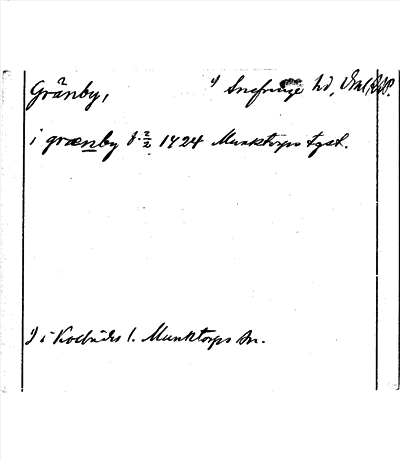 Gränby, 1) Snefringe hd,
i grænby 8 2/2 1424 Munktorps tgst.
1) i Kolbäcks l. Munktorps sn.